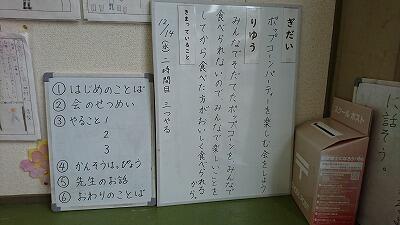 ぎだい
ポップコーンパーティーを楽しむ会をしよう
りゆう
みんなでそだてたポップコーンを、みんなで
食べられないので、みんなで楽しいことを
してから食べた方がおいしく食べられる
から。
きまっていること
12/14 ㊌ 二時間目 三つやる
① はじめのことば
② 会のせつめい
③ やること 1
2
3
④ かんそうはっぴょう
⑤ 先生のお話
⑥ おわりのことば
スクールポスト
に話そう。